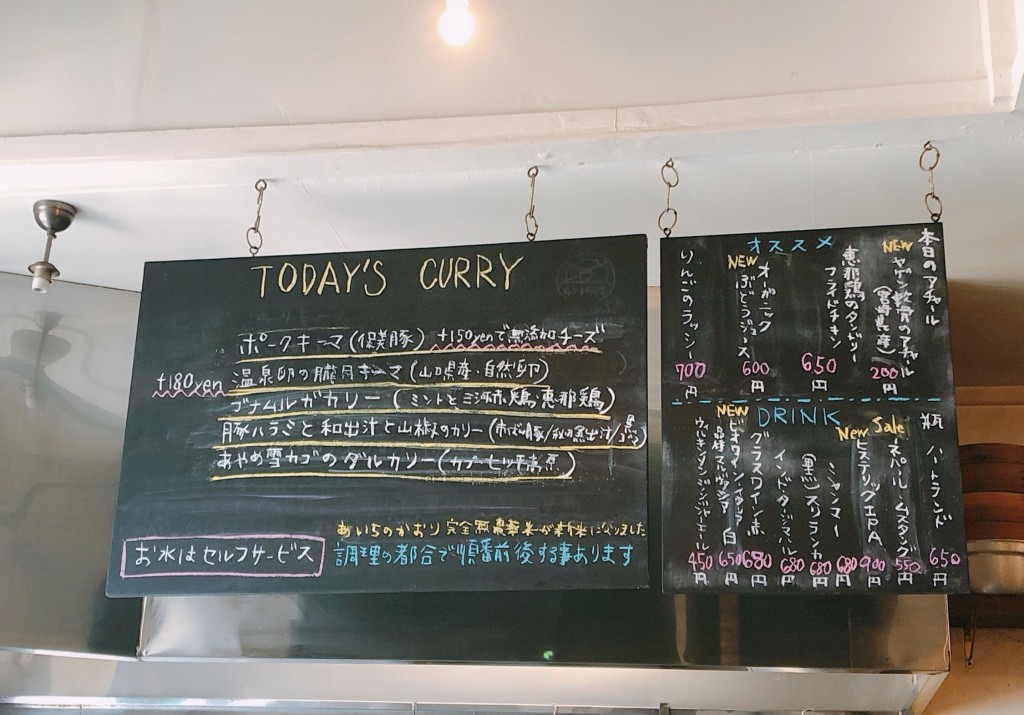 TODAY'S CURRY
ポークキーマ (保美豚) +150yenで無添加チーズ
+180yen 温泉卵の朧月キーマ (山口県産・自然卵)
ゴナムルガカリー (ミントと三河赤鶏・恵那鶏)
豚ハラミと和出汁と山椒のカリー
あやめ雪カブのダルカリー
あいちのかおり 完全無農薬米が新米になりました
お水はセルフサービス
調理の都合で順番前後する事あります
本日のアチャール
NEW ヤゲン軟骨のアチャール (宮崎県産) 200円
オススメ
恵那鶏のタンドリーフライドチキン 650円
NEW オーガニックぶどうジュース 600円
りんごのラッシー 700円
DRINK
瓶 ハートランド 650円
New Sale ネパール ムスタング 550円
ヒステリックIPA 900円
ミャンマー 680円
(黒) スリランカ 680円
インド・タージマハル 680円
グラスワイン 赤 680円
NEW ビオワイン イタリア 白 650円
ウィルキンソンジンジャーエール 450円